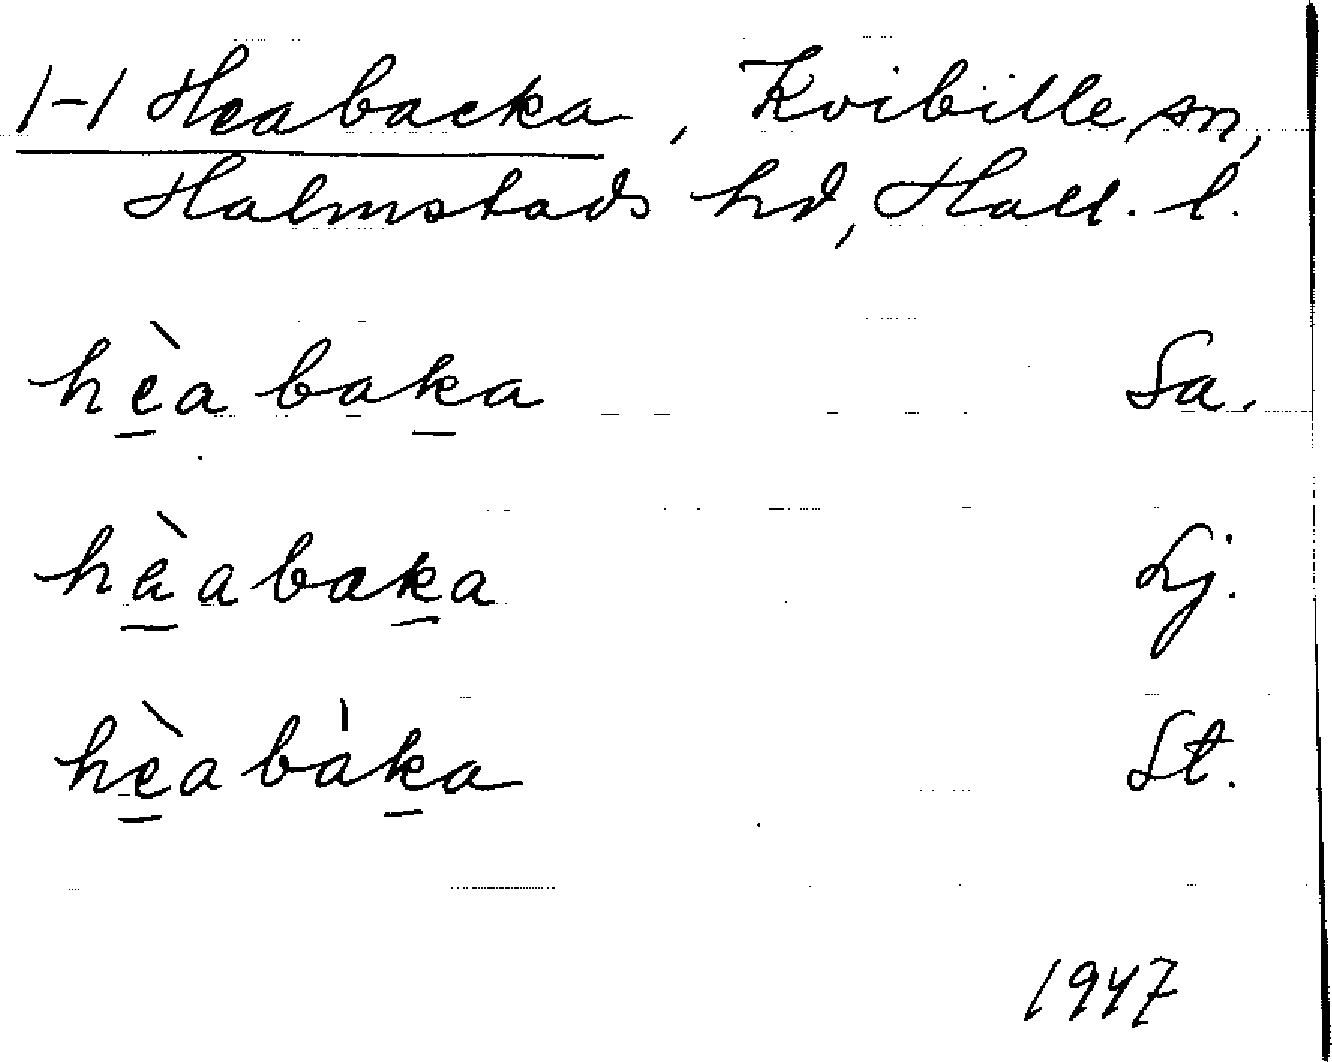 1-1 Heabacka, Kvibille sn,
Halmstads hd, Hall. l.
hèabaka Sa.
hèabaka Lj.
hèabàka St.
1947